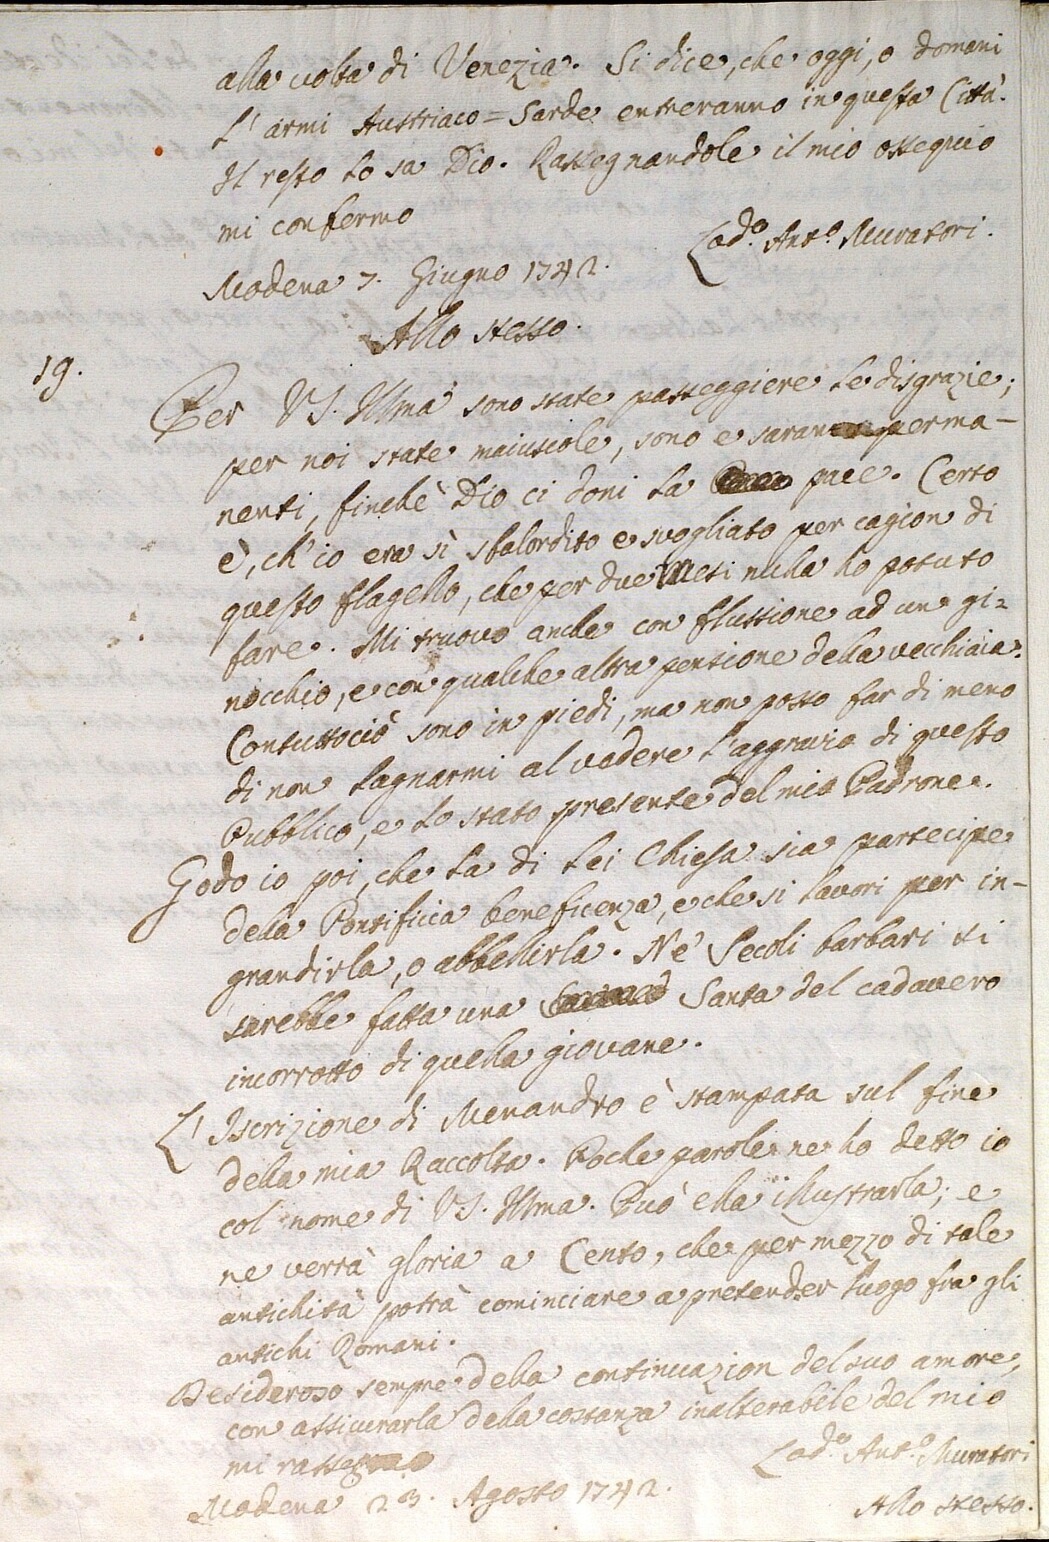 alla volta di Venezia. Si dice, che oggi, o domani
l'armi Austriaco=Sarde entreranno in questa Città.
Il resto lo sa Dio. Rassegnandole il mio ossequio
mi confermo
Lod.º Ant.º Muratori.
Modena 7. Giugno 1742.
Allo stesso.
19.
Per V.S. Illma sono state passeggiere le disgrazie;
per noi state maiuscole, sono e saranno perma-
nenti, finchè Dio ci doni la pace. Certo
è, ch'io era sì sbalordito e svogliato per cagion di
questo flagello, che per due Mesi nulla ho potuto
fare. Mi truovo anche con flussione ad un gi-
nocchio, e con qualche altra pensione della vecchiaia.
Contuttociò sono in piedi, ma non posso far di meno
di non lagnarmi al vedere l'aggravio di questo
Pubblico, e lo stato presente del mio Padrone.
Godo io poi, che la di lei Chiesa sia partecipe
della Pontificia beneficenza, e che si lavori per in-
grandirla, o abbellirla. Ne' Secoli barbari si
sarebbe fatta una Santa del cadavero
incorrotto di quella giovane.
L'Iscrizione di Menandro è stampata sul fine
della mia Raccolta. Poche parole ne ho detto io
col nome di V.S. Illma. Può ella illustrarla; e
ne verrà gloria a Cento, che per mezzo di tale
antichità potrà cominciare a pretender luogo fra gli
antichi Romani.
Desideroso sempre della continuazion del suo amore,
con assicurarla della costanza inalterabile del mio
mi rassegno
Lod.º Ant.º Muratori
Modena 23. Agosto 1742.
Allo stesso.